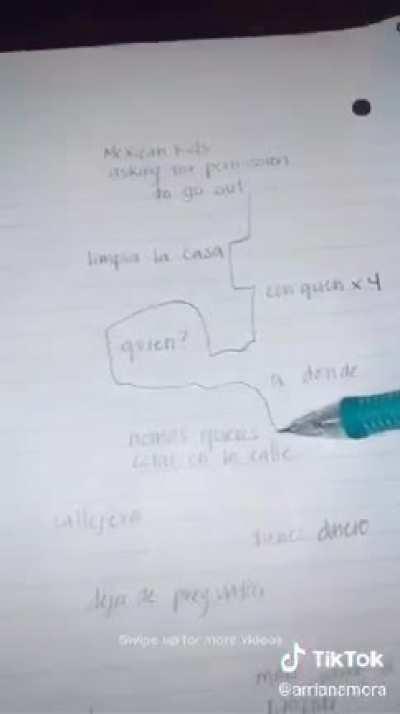 Mexican kids
asking for permission
to go out
limpia la casa
con quien x4
quien?
a donde
nomas quieres
estar en la calle
callejera
tienes dinero
deja de preguntar
Swipe up for more videos
TikTok
@arrianamora